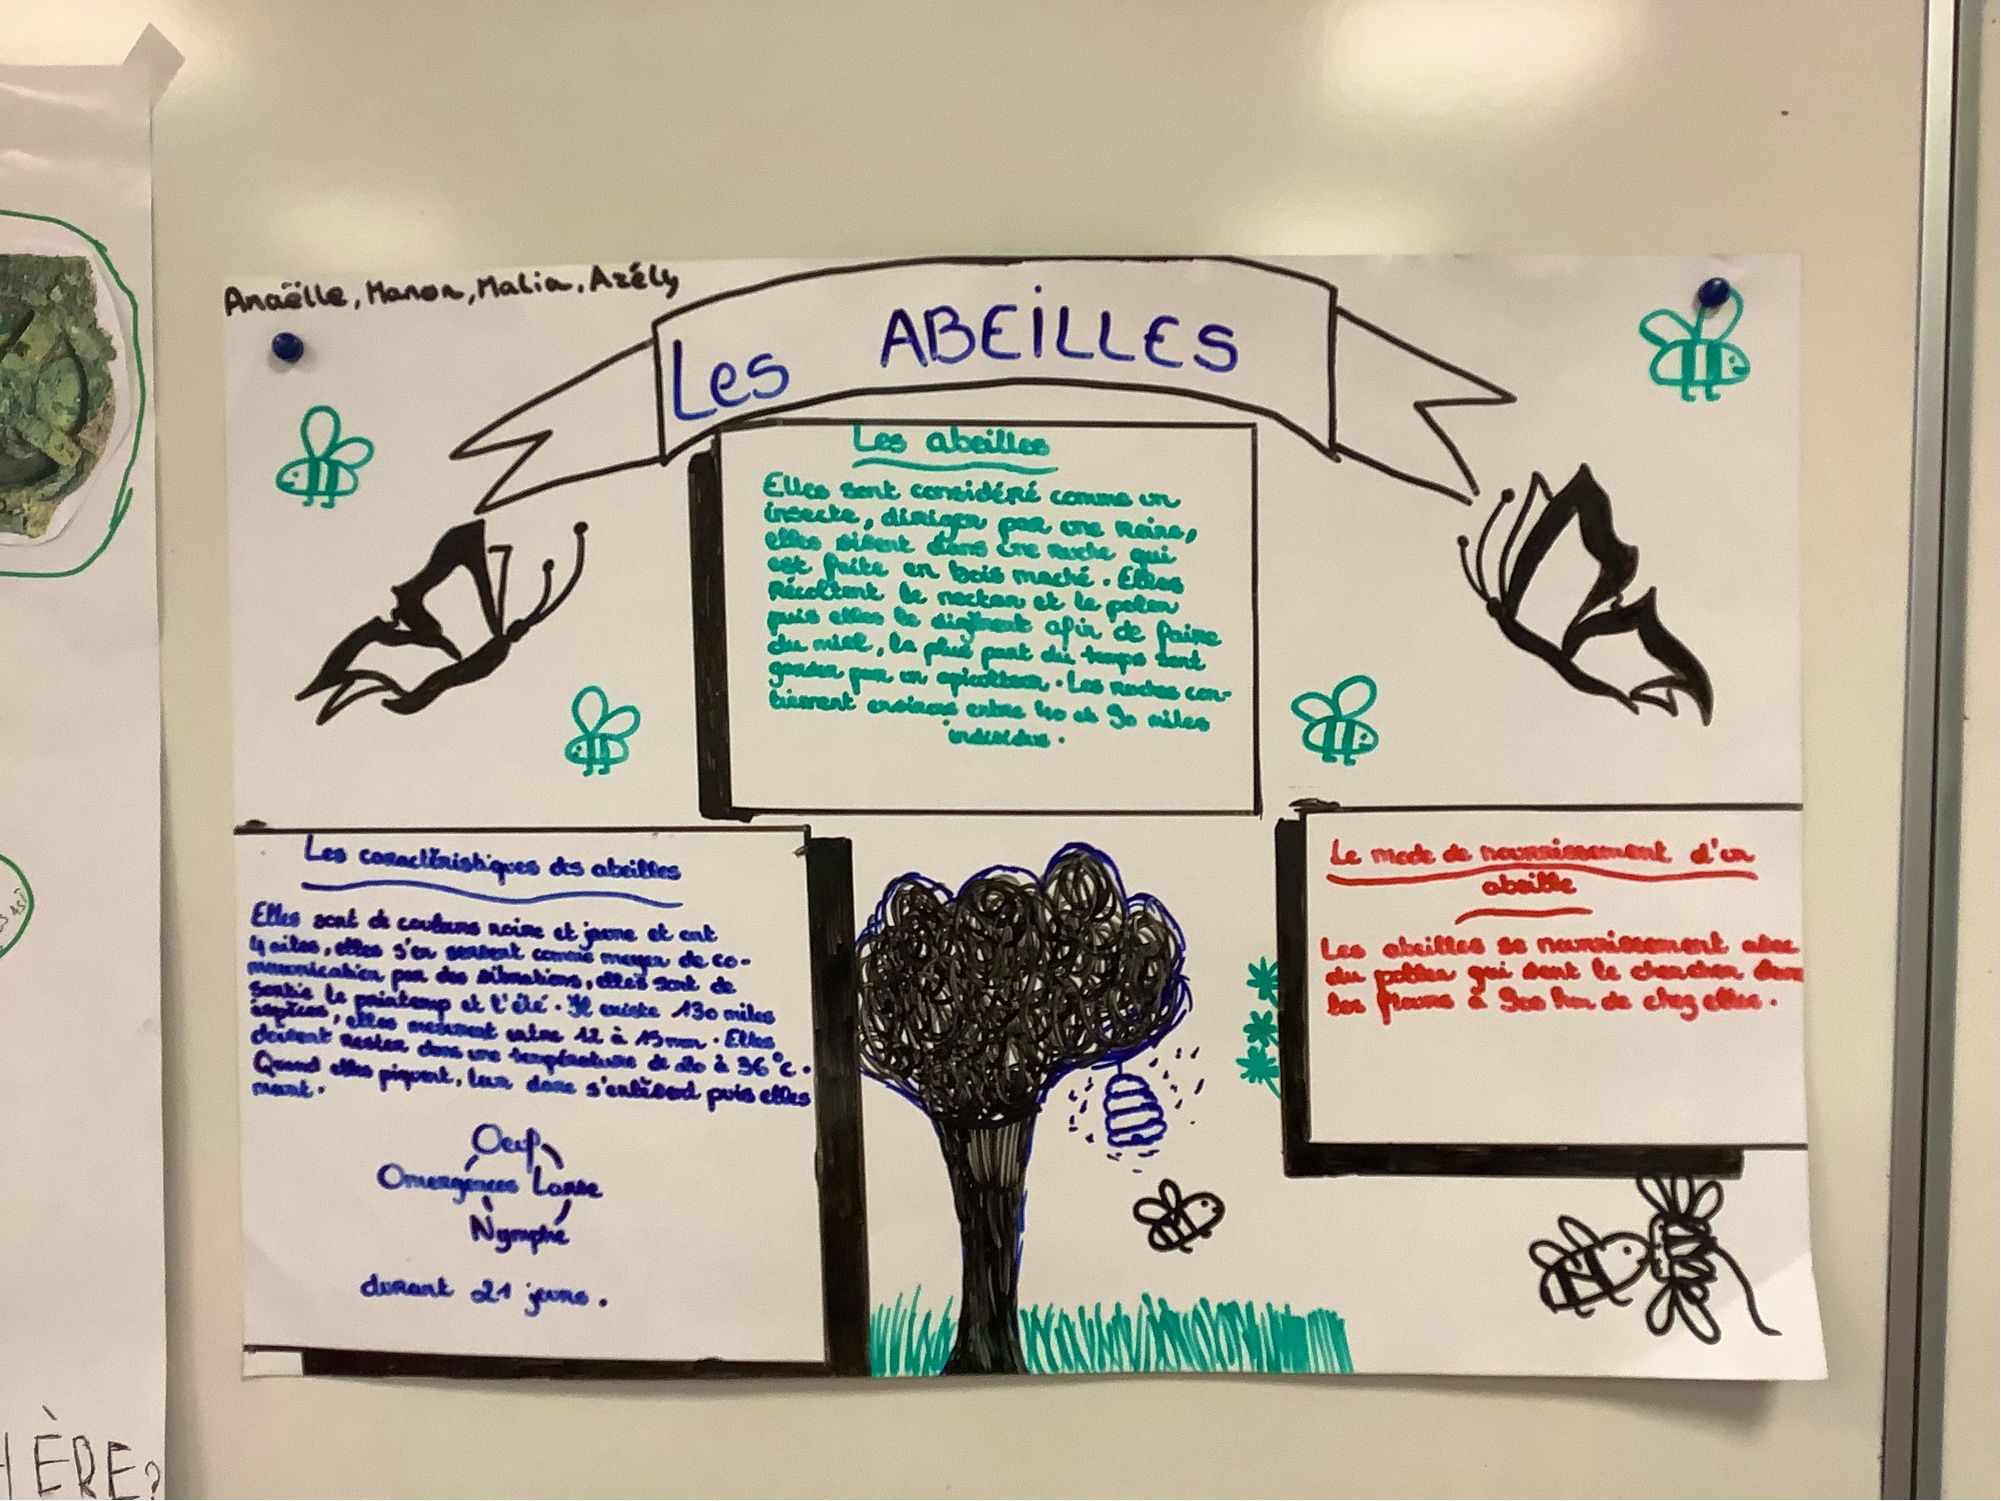 Anaëlle, Manon, Malia, Azély
Les ABEILLES
Les abeilles
Elles sont considéré comme un
insecte, diriger par une reine,
elles vivent dans une ruche qui
est faite en bois maché. Elles
récoltent le nectar et le polen
puis elles le digèrent afin de faire
du miel, la plus part du temps sont
garder par un apiculteur. Les ruches con-
tiennent environs entre 40 et 90 milles
individus.
Les caractéristiques des abeilles
Elles sont de couleurs noire et jaune et ont
4 ailes, elles s'en servent comme moyen de co-
mmunication par des vibrations, elles sont de
sortie le printemp et l'été. Il existe 130 milles
espèces, elles mesurent entre 12 à 15 mm. Elles
doivent rester dans une température de 20 à 36°c.
Quand elles piquent, leur dare s'enlèvent puis elles
mart.
Oeuf
Omergences Larve
Nymphe
durant 21 jours.
Le mode de nourrissement d'un
abeille
Les abeilles se nourrissement avec
du pollen qui sont le chercher dans
les fleurs à 900 km de chez elles.
HÈRE?